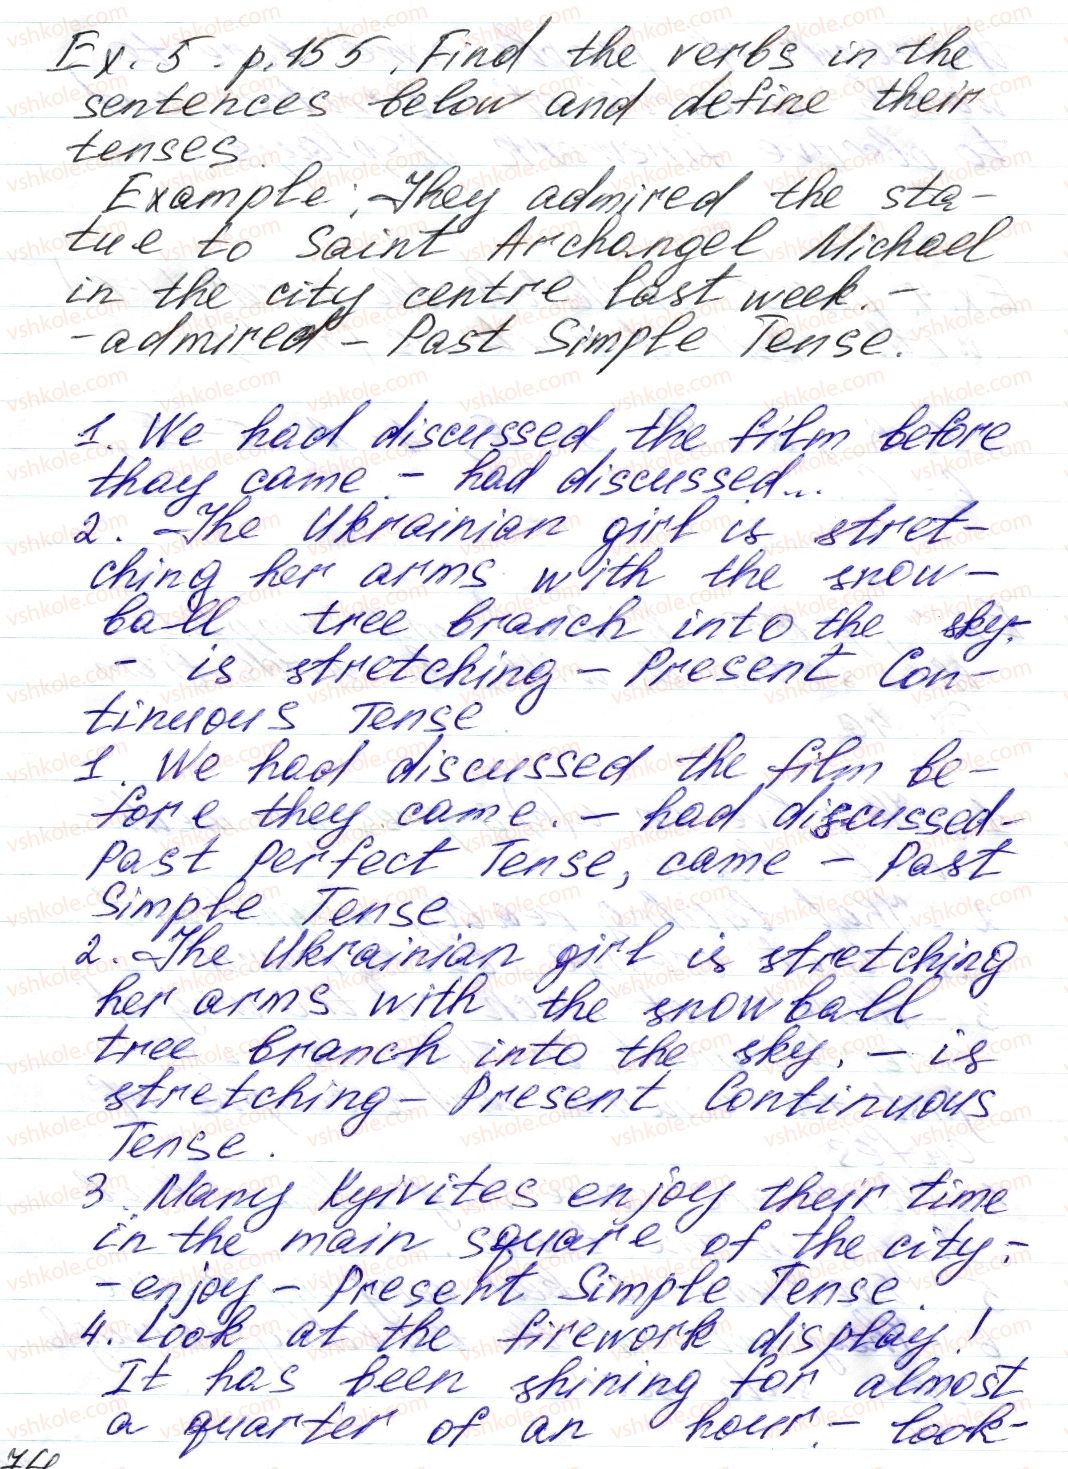 Ex. 5. p. 155. Find the verbs in the
sentences below and define their
tenses.
Example: They admired the sta-
tue to Saint Archangel Michael
in the city centre last week. -
- admired - Past Simple Tense.
1. We had discussed the film before
thay came. - had discussed...
2. The Ukrainian girl is stret-
ching her arms with the snow-
ball tree branch into the sky. -
- is stretching - Present Con-
tinuous Tense
1. We had discussed the film be-
fore they came. - had discussed -
Past Perfect Tense, came - Past
Simple Tense.
2. The Ukrainian girl is stretching
her arms with the snowball
tree branch into the sky. - is
stretching - Present Continuous
Tense.
3. Many Kyivites enjoy their time
in the main square of the city. -
- enjoy - Present Simple Tense.
4. Look at the firework display!
It has been shining for almost
a quarter of an hour. - look -